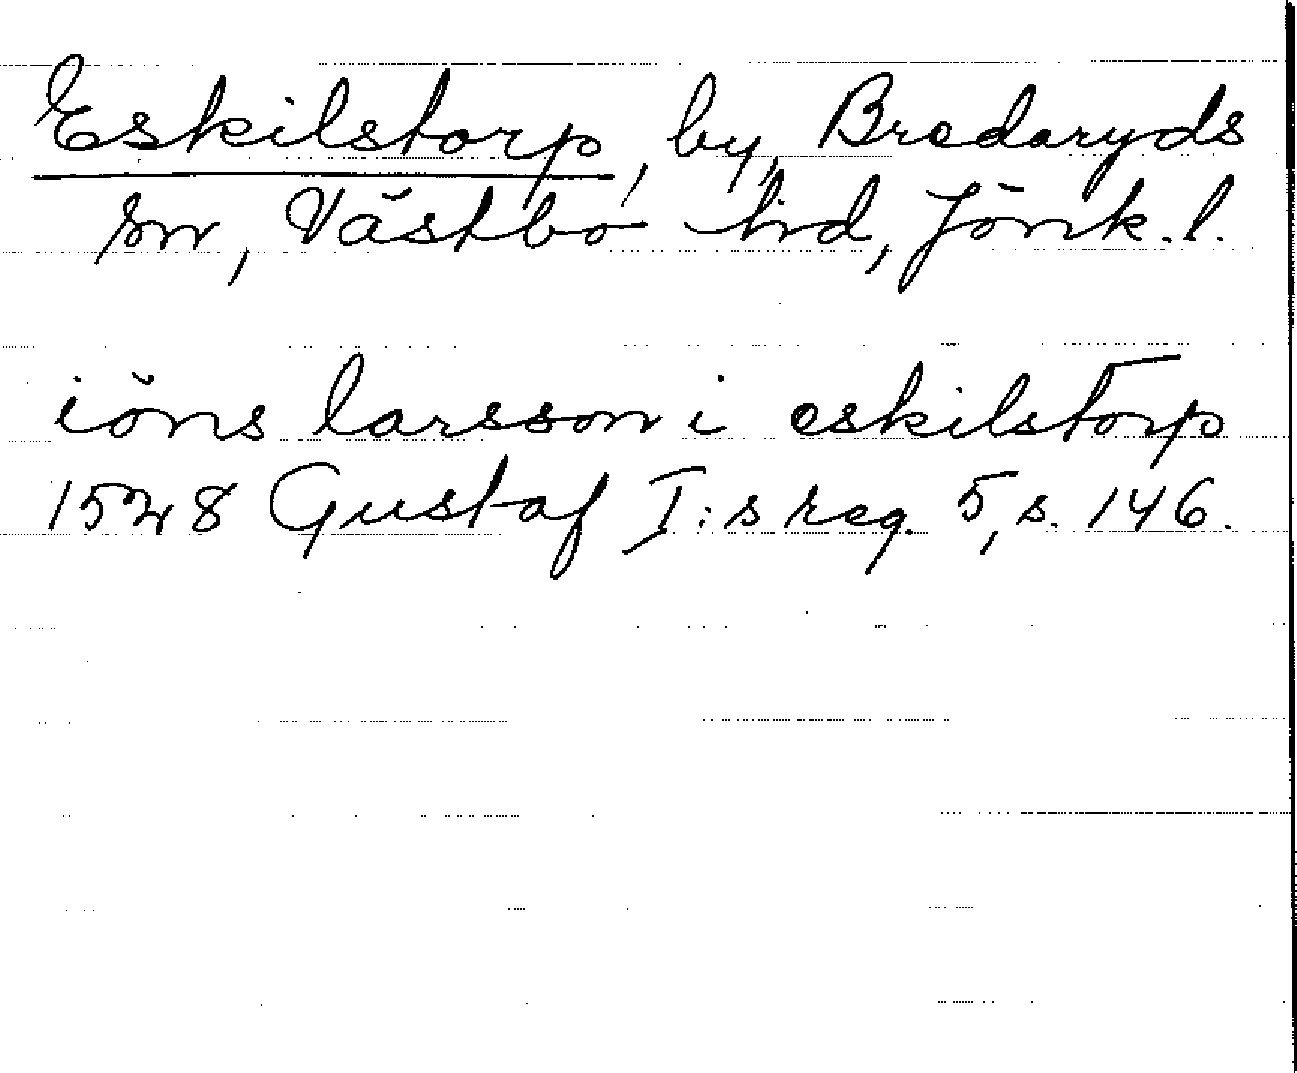 Eskilstorp, by, Bredaryds
sn, Västbo hd, Jönk. l.
iöns larsson i eskilstorp
1528 Gustaf I:s reg. 5, s. 146.